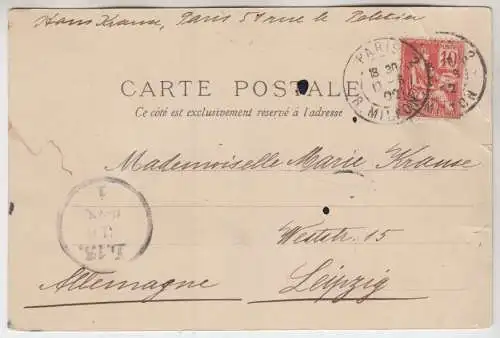 Hans Krause, Paris 54 rue le Peletier
PARIS
18 30
R. MILTON
10
CARTE POSTALE
Ce côté est exclusivement reservé à l'adresse
Mademoiselle Marie Krause
L.13.
1
Weststr. 15
Allemagne
Leipzig